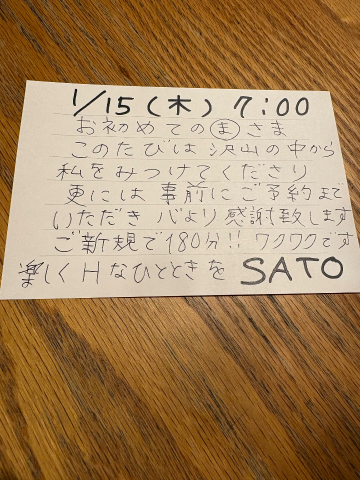 1/15(木) 7:00
お初めての㋮さま
このたびは沢山の中から
私をみつけてくださり
更には事前にご予約まで
いただき バより感謝致します
ご新規で180分!! ワクワクです
楽しくHなひとときを SATO